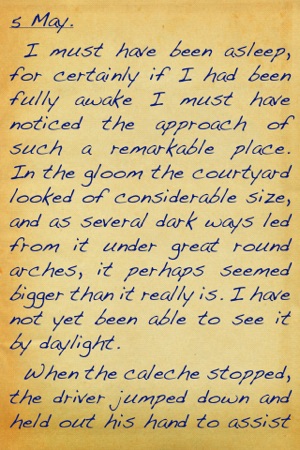 5 May.
I must have been asleep,
for certainly if I had been
fully awake I must have
noticed the approach of
such a remarkable place.
In the gloom the courtyard
looked of considerable size,
and as several dark ways led
from it under great round
arches, it perhaps seemed
bigger than it really is. I have
not yet been able to see it
by daylight.
When the caleche stopped,
the driver jumped down and
held out his hand to assist